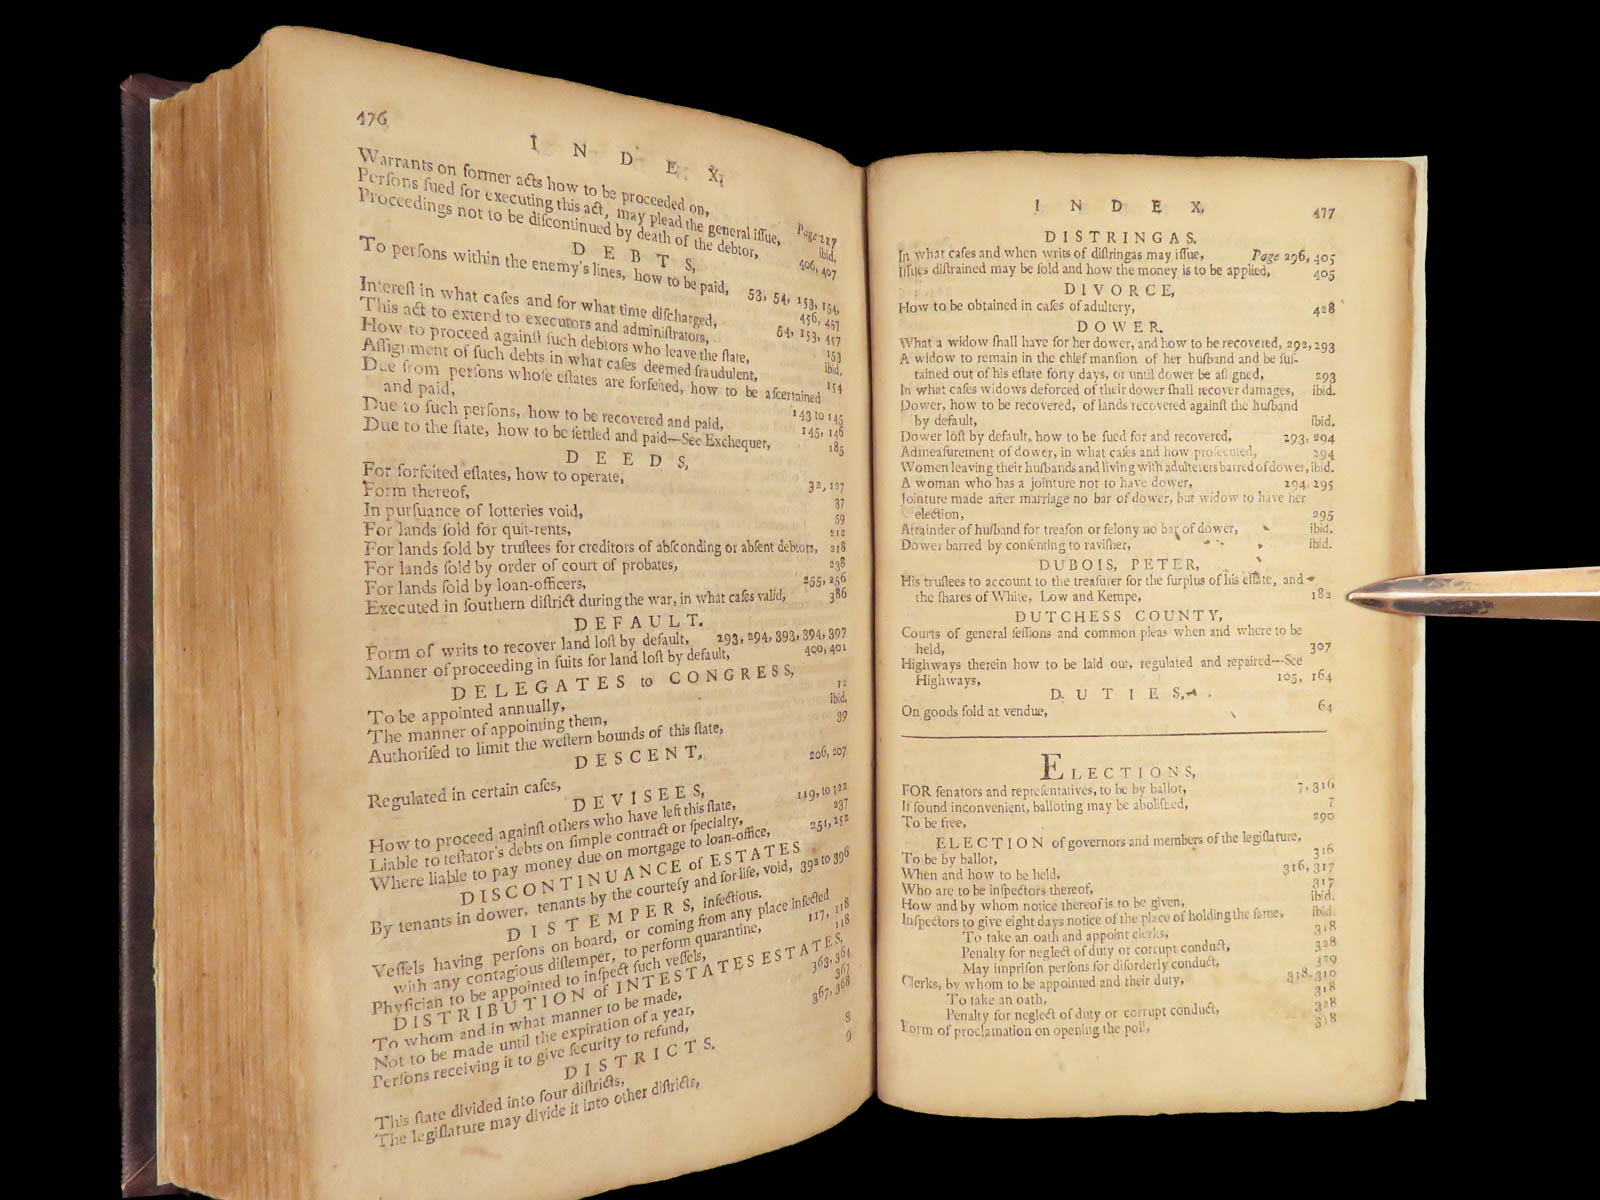 476
INDEX,
Warrants on former acts how to be proceeded on, Page 227
Perſons ſued for executing this act, may plead the general iſſue, ibid,
Proceedings not to be diſcontinued by death of the debtor, 406, 407
DEBTS,
To perſons within the enemy's lines, how to be paid, 53, 54, 153, 154,
456, 457
Intereſt in what caſes and for what time diſcharged, 54, 153, 457
This act to extend to executors and adminiſtrators, 153
How to proceed againſt ſuch debtors who leave the ſtate, ibid.
Aſſignment of ſuch debts in what caſes deemed fraudulent, 154
Due from perſons whoſe eſtates are forfeited, how to be aſcertained
and paid, 143 to 145
Due to ſuch perſons, how to be recovered and paid, 145, 146
Due to the ſtate, how to be ſettled and paid—See Exchequer, 185
DEEDS,
For forfeited eſtates, how to operate, 32, 127
Form thereof, 37
In purſuance of lotteries void, 59
For lands ſold for quit-rents, 212
For lands ſold by truſtees for creditors of abſconding or abſent debtors, 218
For lands ſold by order of court of probates, 238
For lands ſold by loan-officers, 255, 256
Executed in ſouthern diſtrict during the war, in what caſes valid, 386
DEFAULT.
Form of writs to recover land loſt by default, 293, 294, 393, 394, 397
Manner of proceeding in ſuits for land loſt by default, 400, 401
DELEGATES to CONGRESS,
To be appointed annually, 12
The manner of appointing them, ibid.
Authoriſed to limit the weſtern bounds of this ſtate, 39
DESCENT,
Regulated in certain caſes, 206, 207
DEVISEES,
How to proceed againſt others who have left this ſtate, 119, to 122
Liable to teſtator's debts on ſimple contract or ſpecialty, 237
Where liable to pay money due on mortgage to loan-office, 251, 252
DISCONTINUANCE of ESTATES
By tenants in dower, tenants by the courteſy and for life, void, 392 to 396
DISTEMPERS, infectious.
Veſſels having perſons on board, or coming from any place infected
with any contagious diſtemper, to perform quarantine, 117, 118
Phyſician to be appointed to inſpect ſuch veſſels, 118
DISTRIBUTION of INTESTATES ESTATES,
To whom and in what manner to be made, 363, 364
Not to be made until the expiration of a year, 367
Perſons receiving it to give ſecurity to refund, 367, 368
DISTRICTS.
This ſtate divided into four diſtricts, 8
The legiſlature may divide it into other diſtricts, 9
INDEX, 477
DISTRINGAS.
In what caſes and when writs of diſtringas may iſſue, Page 296, 405
Iſſues diſtrained may be ſold and how the money is to be applied, 405
DIVORCE,
How to be obtained in caſes of adultery, 428
DOWER.
What a widow ſhall have for her dower, and how to be recovered, 292, 293
A widow to remain in the chief manſion of her huſband and be ſuſ-
tained out of his eſtate forty days, or until dower be aſſigned, 293
In what caſes widows deforced of their dower ſhall recover damages, ibid.
Dower, how to be recovered, of lands recovered againſt the huſband
by default, ibid.
Dower loſt by default, how to be ſued for and recovered, 293, 294
Admeaſurement of dower, in what caſes and how proſecuted, 294
Women leaving their huſbands and living with adulterers barred of dower, ibid.
A woman who has a jointure not to have dower, 294, 295
Jointure made after marriage no bar of dower, but widow to have her
election, 295
Attainder of huſband for treaſon or felony no bar of dower, ibid.
Dower barred by conſenting to raviſher, ibid.
DUBOIS, PETER,
His truſtees to account to the treaſurer for the ſurplus of his eſtate, and
the ſhares of White, Low and Kempe, 182
DUTCHESS COUNTY,
Courts of general ſeſſions and common pleas when and where to be
held, 307
Highways therein how to be laid out, regulated and repaired—See
Highways, 105, 164
DUTIES,
On goods ſold at vendue, 64
ELECTIONS,
FOR ſenators and repreſentatives, to be by ballot, 7, 316
If found inconvenient, balloting may be aboliſhed, 7
To be free, 290
ELECTION of governors and members of the legiſlature,
To be by ballot, 316
When and how to be held, 316, 317
Who are to be inſpectors thereof, 317
How and by whom notice thereof is to be given, ibid.
Inſpectors to give eight days notice of the place of holding the ſame, ibid.
To take an oath and appoint clerks, 318
Penalty for neglect of duty or corrupt conduct, 328
May impriſon perſons for diſorderly conduct, 329
Clerks, by whom to be appointed and their duty, 318, 319
To take an oath, 318
Penalty for neglect of duty or corrupt conduct, 328
Form of proclamation on opening the poll, 318